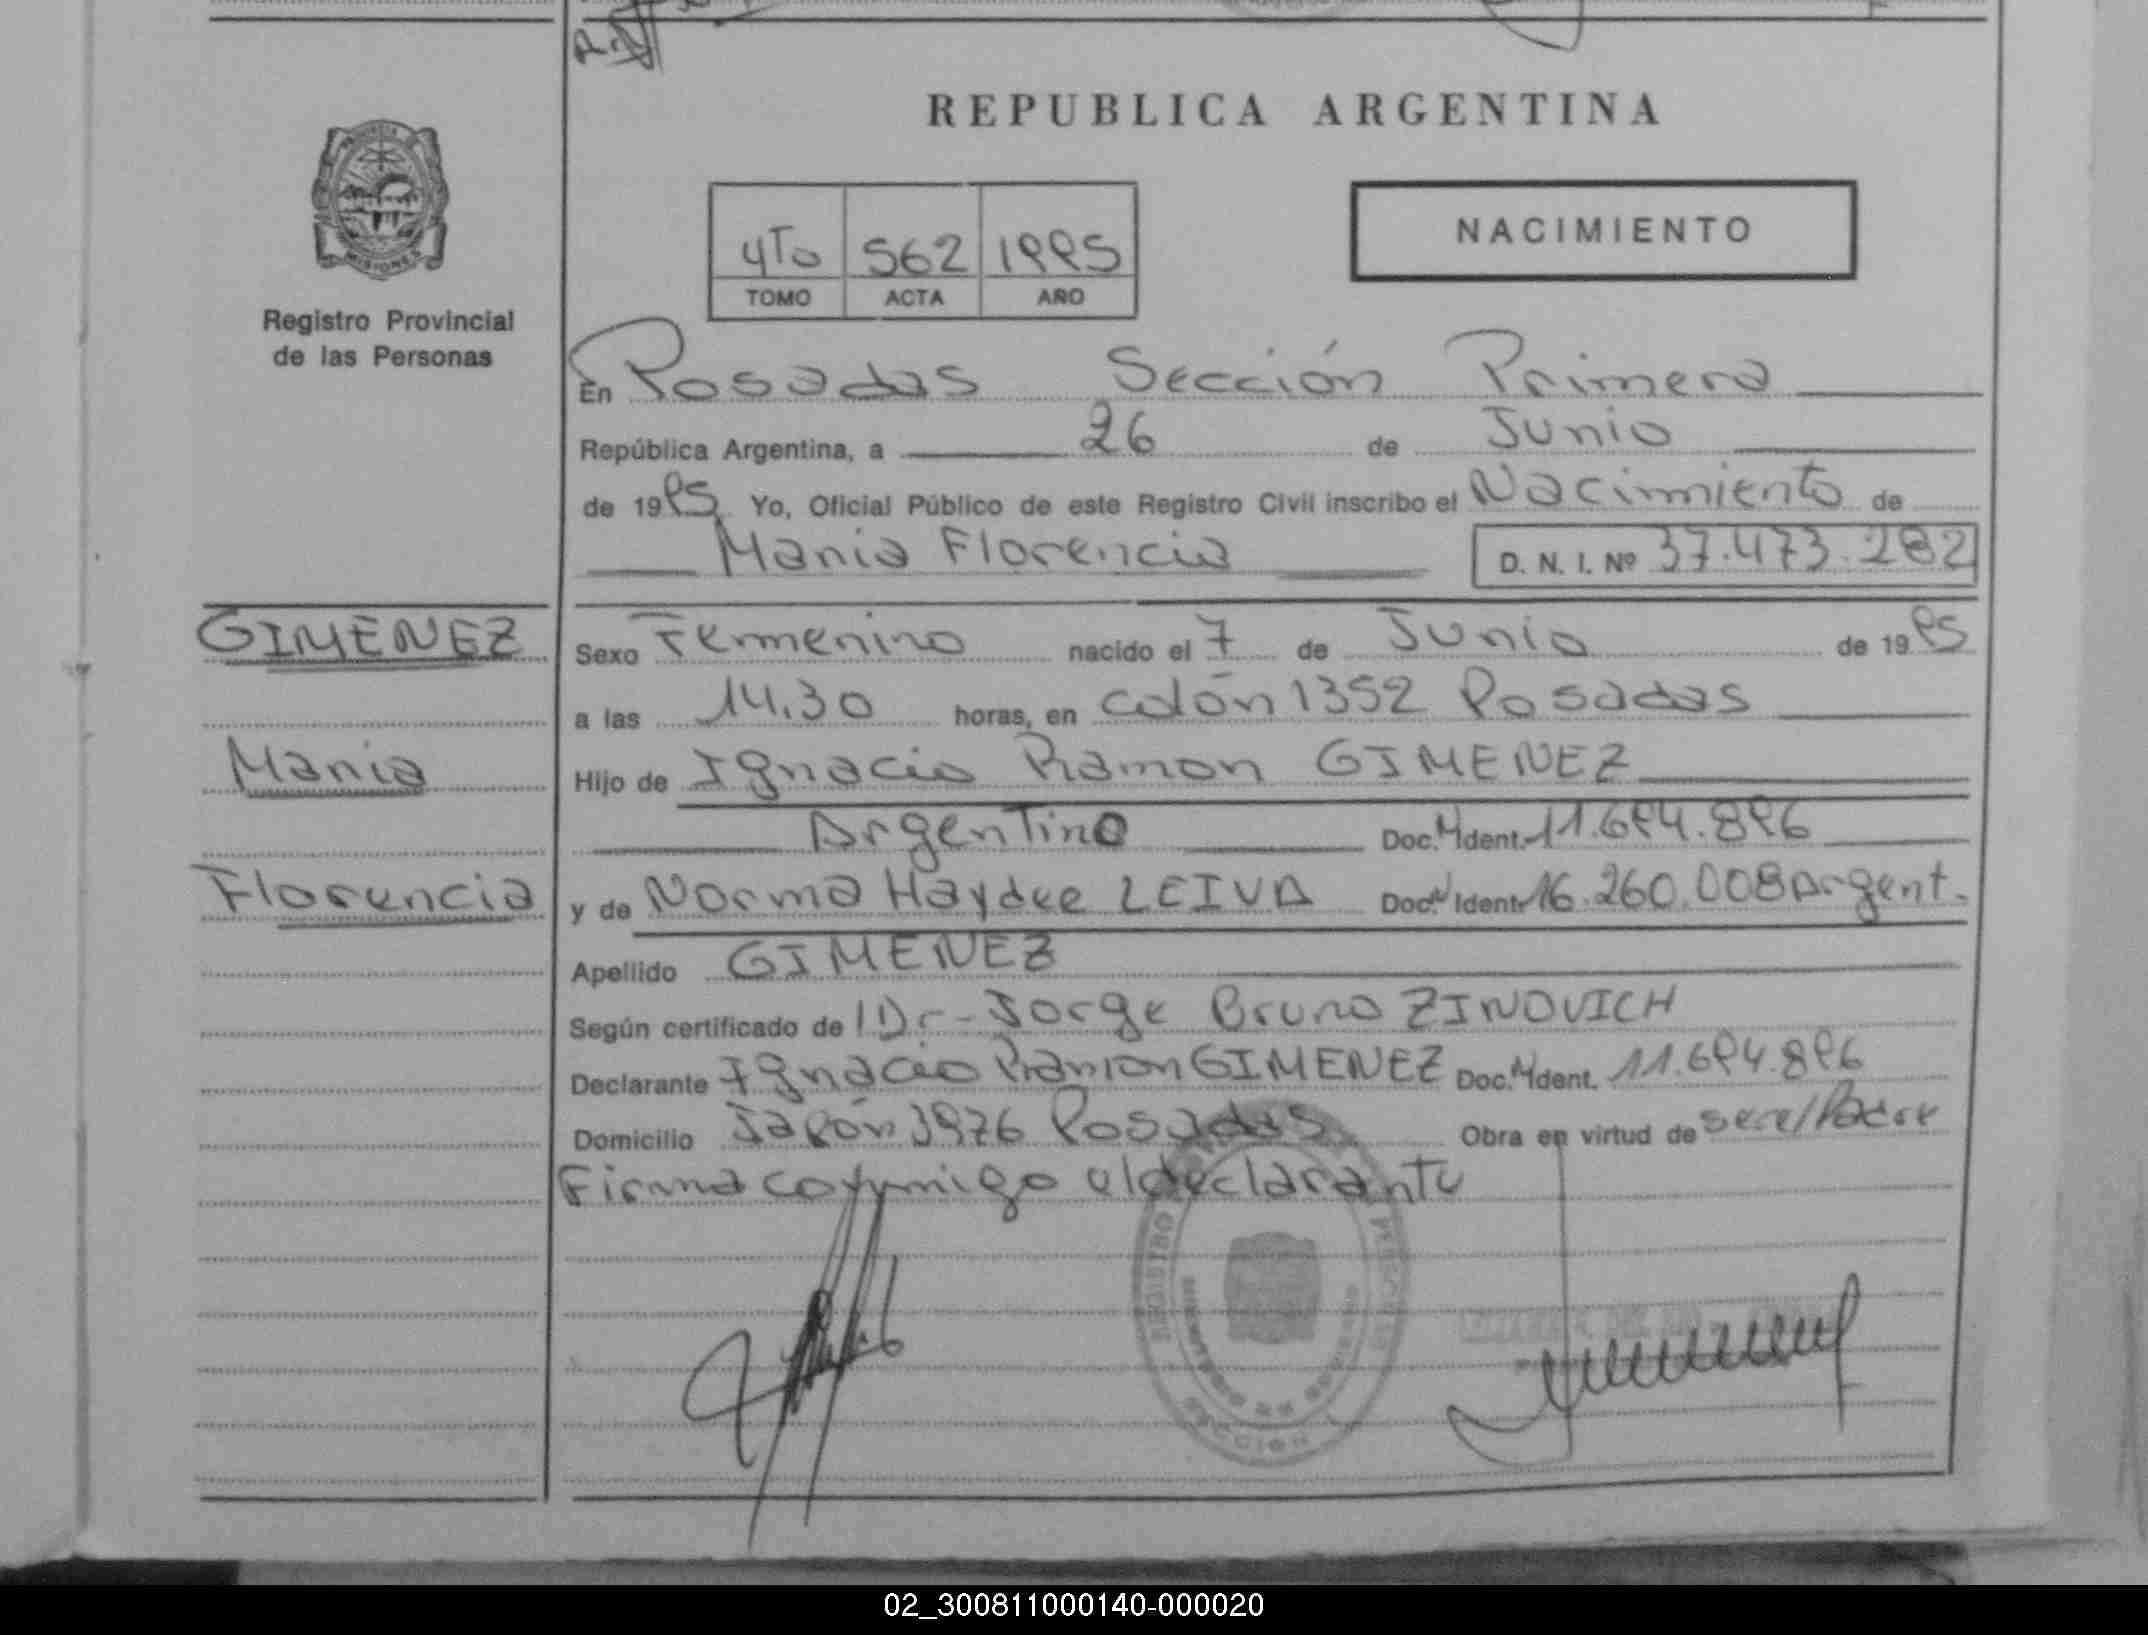 REPUBLICA ARGENTINA
MISIONES
Registro Provincial
de las Personas
4To 562 1995
TOMO ACTA AÑO
NACIMIENTO
En Posadas Sección Primera
República Argentina, a 26 de Junio
de 1995 Yo, Oficial Público de este Registro Civil inscribo el Nacimiento de
María Florencia D. N. I. Nº 37.473.282
GIMENEZ
María
Florencia
Sexo Femenino nacido el 7 de Junio de 1995
a las 14.30 horas, en colón 1352 Posadas
Hijo de Ignacio Ramon GIMENEZ
Argentino Doc. Ident. 11.694.896
y de Norma Haydee LEIVA Doc. Ident. 16.260.008 Argent.
Apellido GIMENEZ
Según certificado de Dr- Jorge Bruno ZINOVICH
Declarante Ignacio Ramon GIMENEZ Doc. Ident. 11.694.896
Domicilio Japón 3976 Posadas Obra en virtud de ser el Padre
Firma conmigo el declarante
REGISTRO
SECCION 1
02_300811000140-000020